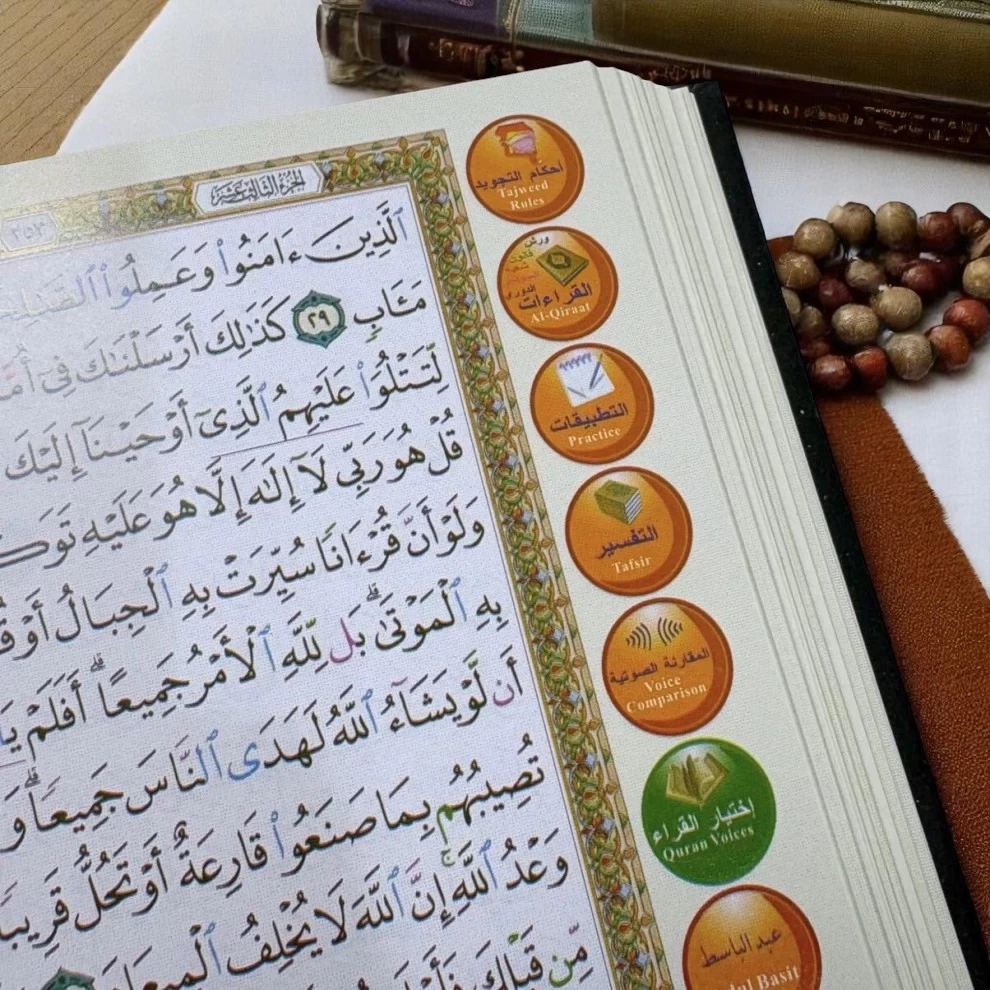 الجزء الثالث عشر
٢٥٣
ٱلَّذِينَ ءَامَنُوا۟ وَعَمِلُوا۟
مَـَٔابٍ ٢٩ كَذَٰلِكَ أَرْسَلْنَٰكَ فِىٓ
لِّتَتْلُوَا۟ عَلَيْهِمُ ٱلَّذِىٓ أَوْحَيْنَآ إِلَيْكَ
قُلْ هُوَ رَبِّى لَآ إِلَٰهَ إِلَّا هُوَ عَلَيْهِ
وَلَوْ أَنَّ قُرْءَانًا سُيِّرَتْ بِهِ ٱلْجِبَالُ أَوْ
بِهِ ٱلْمَوْتَىٰ ۗ بَل لِّلَّهِ ٱلْأَمْرُ جَمِيعًا ۗ أَفَلَمْ
أَن لَّوْ يَشَآءُ ٱللَّهُ لَهَدَى ٱلنَّاسَ جَمِيعًا ۗ وَ
تُصِيبُهُم بِمَا صَنَعُوا۟ قَارِعَةٌ أَوْ تَحُلُّ قَرِيبًا
وَعْدُ ٱللَّهِ ۚ إِنَّ ٱللَّهَ لَا يُخْلِفُ ٱلْمِيعَادَ
مِّن قَبْلِكَ
أحكام التجويد
Tajweed
Rules
ورش
قالون
شعبة
السوسي
الدوري
القراءات
Al-Qiraat
التطبيقات
Practice
التفسير
Tafsir
المقارنة الصوتية
Voice
Comparison
إختيار القراء
Quran Voices
عبد الباسط
dul Basit